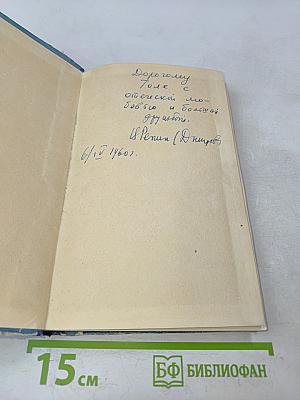 Дорогому
Толе с
отеческой лю-
бовью и большой
дружбой.
6/IV 1960г.
15 см
БФ БИБЛИОФАН